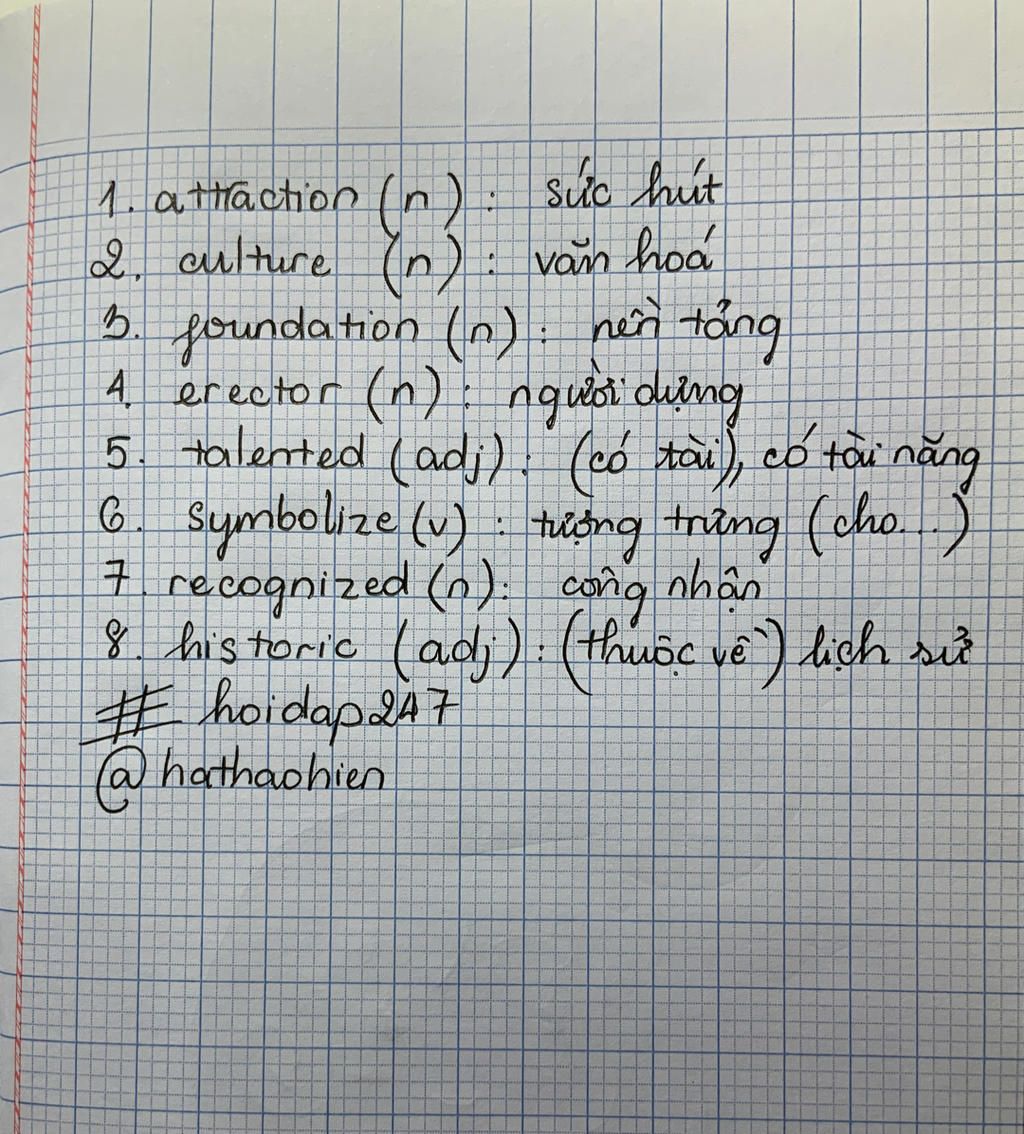 1. attraction (n) : sức hút
2. culture (n) : văn hoá
3. foundation (n) : nền tảng
4. erector (n) : người dựng
5. talented (adj) : (có tài), có tài năng
6. symbolize (v) : tượng trưng (cho...)
7. recognized (n) : công nhận
8. historic (adj) : (thuộc về) lịch sử
# hoidap247
@hathaohien